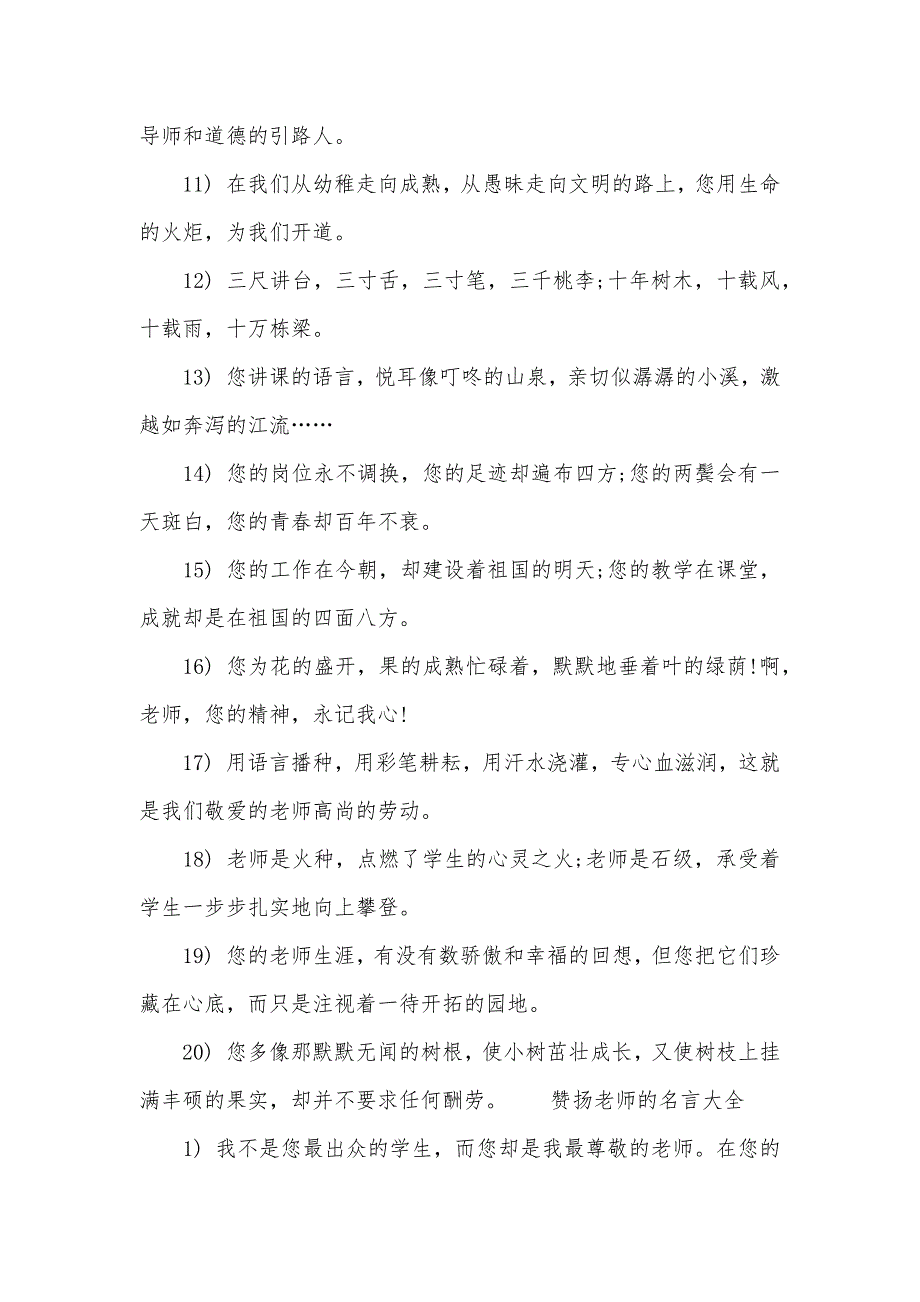 导师和道德的引路人。
11) 在我们从幼稚走向成熟，从愚昧走向文明的路上，您用生命
的火炬，为我们开道。
12) 三尺讲台，三寸舌，三寸笔，三千桃李;十年树木，十载风，
十载雨，十万栋梁。
13) 您讲课的语言，悦耳像叮咚的山泉，亲切似潺潺的小溪，激
越如奔泻的江流……
14) 您的岗位永不调换，您的足迹却遍布四方;您的两鬓会有一
天斑白，您的青春却百年不衰。
15) 您的工作在今朝，却建设着祖国的明天;您的教学在课堂，
成就却是在祖国的四面八方。
16) 您为花的盛开，果的成熟忙碌着，默默地垂着叶的绿荫!啊，
老师，您的精神，永记我心!
17) 用语言播种，用彩笔耕耘，用汗水浇灌，专心血滋润，这就
是我们敬爱的老师高尚的劳动。
18) 老师是火种，点燃了学生的心灵之火;老师是石级，承受着
学生一步步扎实地向上攀登。
19) 您的老师生涯，有没有数骄傲和幸福的回想，但您把它们珍
藏在心底，而只是注视着一待开拓的园地。
20) 您多像那默默无闻的树根，使小树茁壮成长，又使树枝上挂
满丰硕的果实，却并不要求任何酬劳。 赞扬老师的名言大全
1) 我不是您最出众的学生，而您却是我最尊敬的老师。在您的